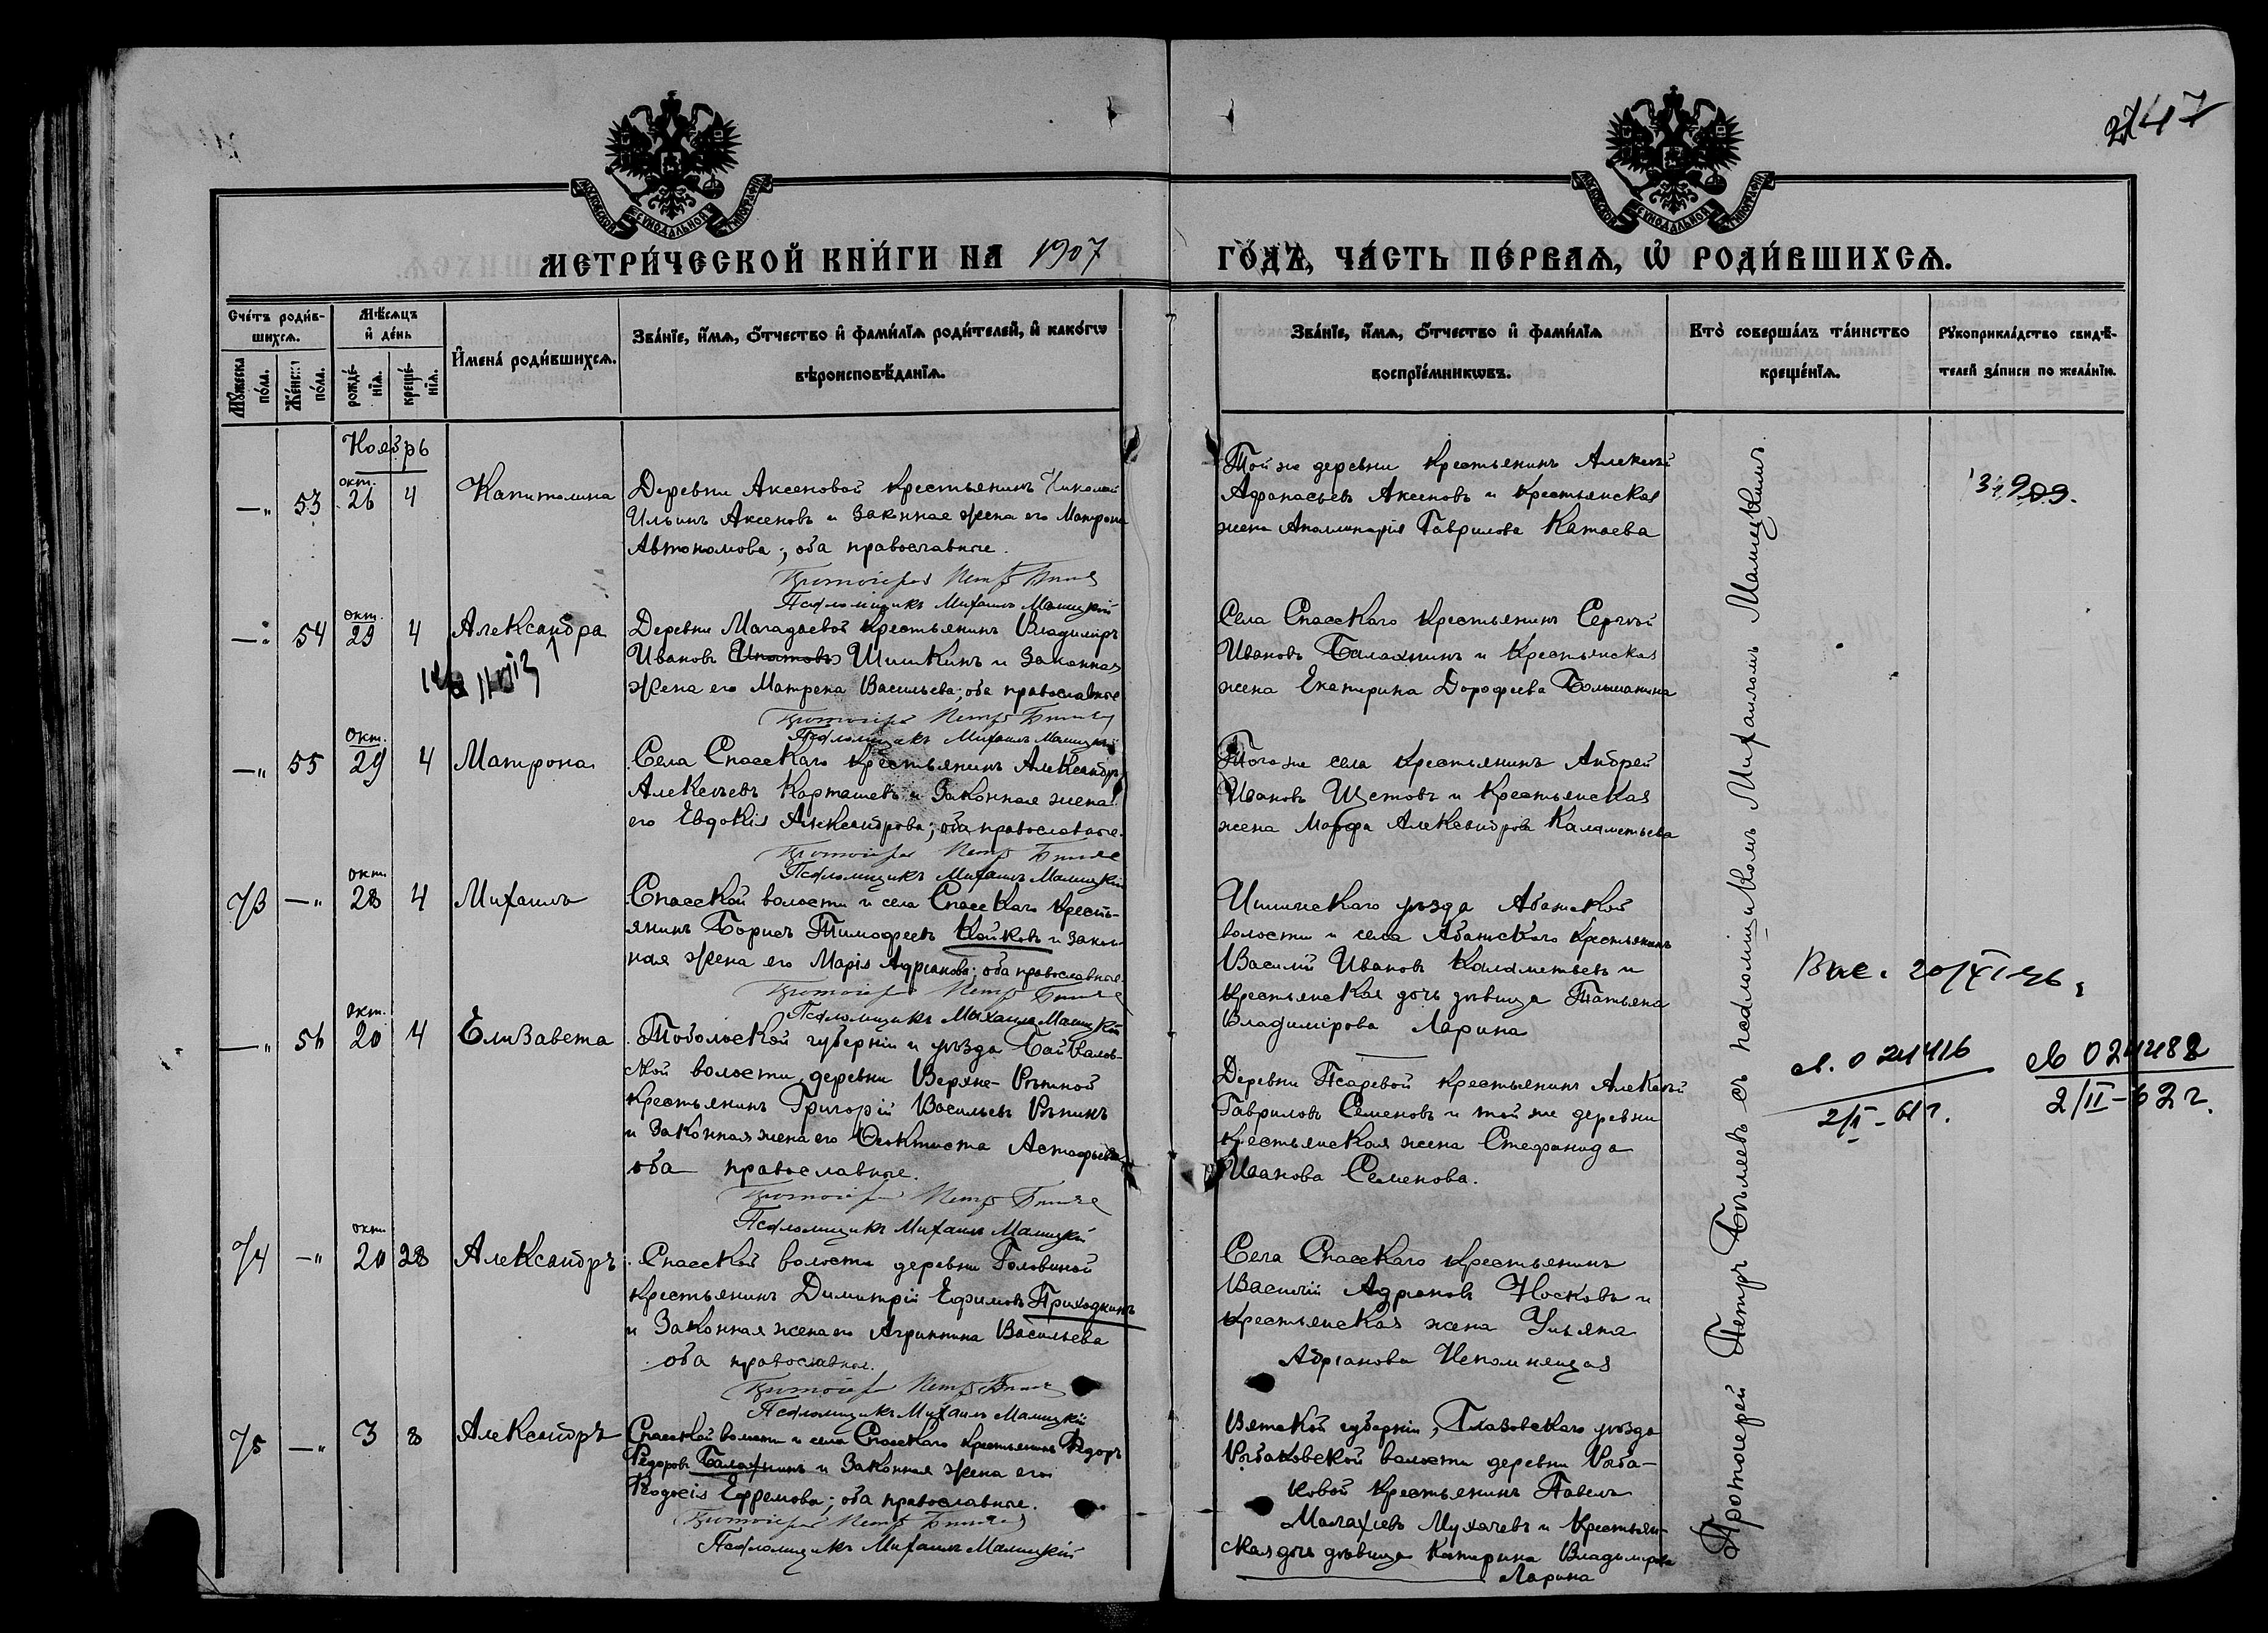 247
МОСКОВСКОЙ СѴНОДАЛЬНОЙ ТИПОГРАФІИ
МОСКОВСКОЙ СѴНОДАЛЬНОЙ ТИПОГРАФІИ
МЕТРИ́ЧЕСКОЙ КНИ́ГИ НА 1907 ГО́ДЪ, ЧА́СТЬ ПЕ́РВАѦ, Ѽ РОДИ́ВШИХСѦ.
Сче́тъ роди́в-
шихсѧ.
Мꙋ́жеска по́ла.
Же́нска по́ла.
Мѣ́сѧцъ
и҆ де́нь
рожде́-
нїѧ.
креще́-
нїѧ.
И҆мена̀ роди́вшихсѧ.
Зва́нїе, и҆́мѧ, ѻ҆́тчество и҆ фами́лїѧ роди́телей, и҆ како́гѡ
вѣроисповѣ́данїѧ.
Зва́нїе, и҆́мѧ, ѻ҆́тчество и҆ фами́лїѧ
воспрїе́мникѡвъ.
Кто̀ соверша́лъ та́инство
креще́нїѧ.
Рꙋкоприкла́дство свидѣ́-
телей за́писи по жела́нїю.
Ноябрь
—„ 53 окт. 26 4 Капитолина
Деревни Аксеновой крестьянинъ Николай
Ильинъ Аксеновъ и законная жена его Матрона
Автономова; оба православные.
Протоіерей Петръ Бѣляевъ
Псаломщикъ Михаилъ Малицкій
Той же деревни крестьянинъ Алексѣй
Афанасьевъ Аксеновъ и крестьянская
жена Аполлинарія Гаврилова Катаева
—„ 54 окт. 29 4 Александра
Деревни Магадаевой крестьянинъ Владиміръ
Ивановъ Шишкинъ и законная
жена его Матрена Васильева; оба православные
Протоіерей Петръ Бѣляевъ
Псаломщикъ Михаилъ Малицкій
Села Спасскаго крестьянинъ Сергѣй
Ивановъ Балахнинъ и крестьянская
жена Екатерина Дорофеева Большанина
—„ 55 окт. 29 4 Матрона
Села Спасскаго крестьянинъ Александръ
Алексѣевъ Карташевъ и законная жена
его Евдокія Александрова; оба православные.
Протоіерей Петръ Бѣляевъ
Псаломщикъ Михаилъ Малицкій
Того же села крестьянинъ Андрей
Ивановъ Щетовъ и крестьянская
жена Марфа Александрова Каламетьева
73 —„ окт. 28 4 Михаилъ
Спасской волости и села Спасскаго кресть-
янинъ Борисъ Тимофеевъ Койковъ и закон-
ная жена его Марія Адріанова; оба православные.
Протоіерей Петръ Бѣляевъ
Псаломщикъ Михаилъ Малицкій
Ишимскаго уѣзда Абатской
волости и села Абатскаго крестьянинъ
Василій Ивановъ Каламетьевъ и
крестьянская дочь дѣвица Татьяна
Владимірова Ларина
—„ 56 окт. 20 4 Елизавета
Тобольской губерніи и уѣзда Байкалов-
ской волости, деревни Верхне-Рѣпиной
крестьянинъ Григорій Васильевъ Рѣпинъ
и законная жена его Феоктиста Астафьева
оба православные.
Протоіерей Петръ Бѣляевъ
Псаломщикъ Михаилъ Малицкій
Деревни Псаревой крестьянинъ Алексѣй
Гавриловъ Семеновъ и той же деревни
крестьянская жена Стефанида
Иванова Семенова.
№ 024488
2/II-62 г.
74 —„ окт. 20 28 Александръ
Спасской волости деревни Головиной
крестьянинъ Димитрій Ефимовъ Приходкинъ
и законная жена его Агриппина Васильева
оба православные.
Протоіерей Петръ Бѣляевъ
Псаломщикъ Михаилъ Малицкій
Села Спасскаго крестьянинъ
Василій Адріановъ Носковъ и
крестьянская жена Ульяна
Адріанова Непомнящая
75 —„ 3 8 Александръ
Спасской волости и села Спасскаго крестьянинъ Ѳедоръ
Ѳедоровъ Балахнинъ и законная жена его
Ѳеодосія Ефремова; оба православные.
Протоіерей Петръ Бѣляевъ
Псаломщикъ Михаилъ Малицкій
Вятской губерніи, Глазовскаго уѣзда
Рыбаковской волости деревни Рыба-
ковой крестьянинъ Павелъ
Малахіевъ Мухачевъ и крестьян-
ская дочь дѣвица Катерина Владимірова
Ларина
Протоіерей Петръ Бѣляевъ съ псаломщикомъ Михаиломъ Малицкимъ.